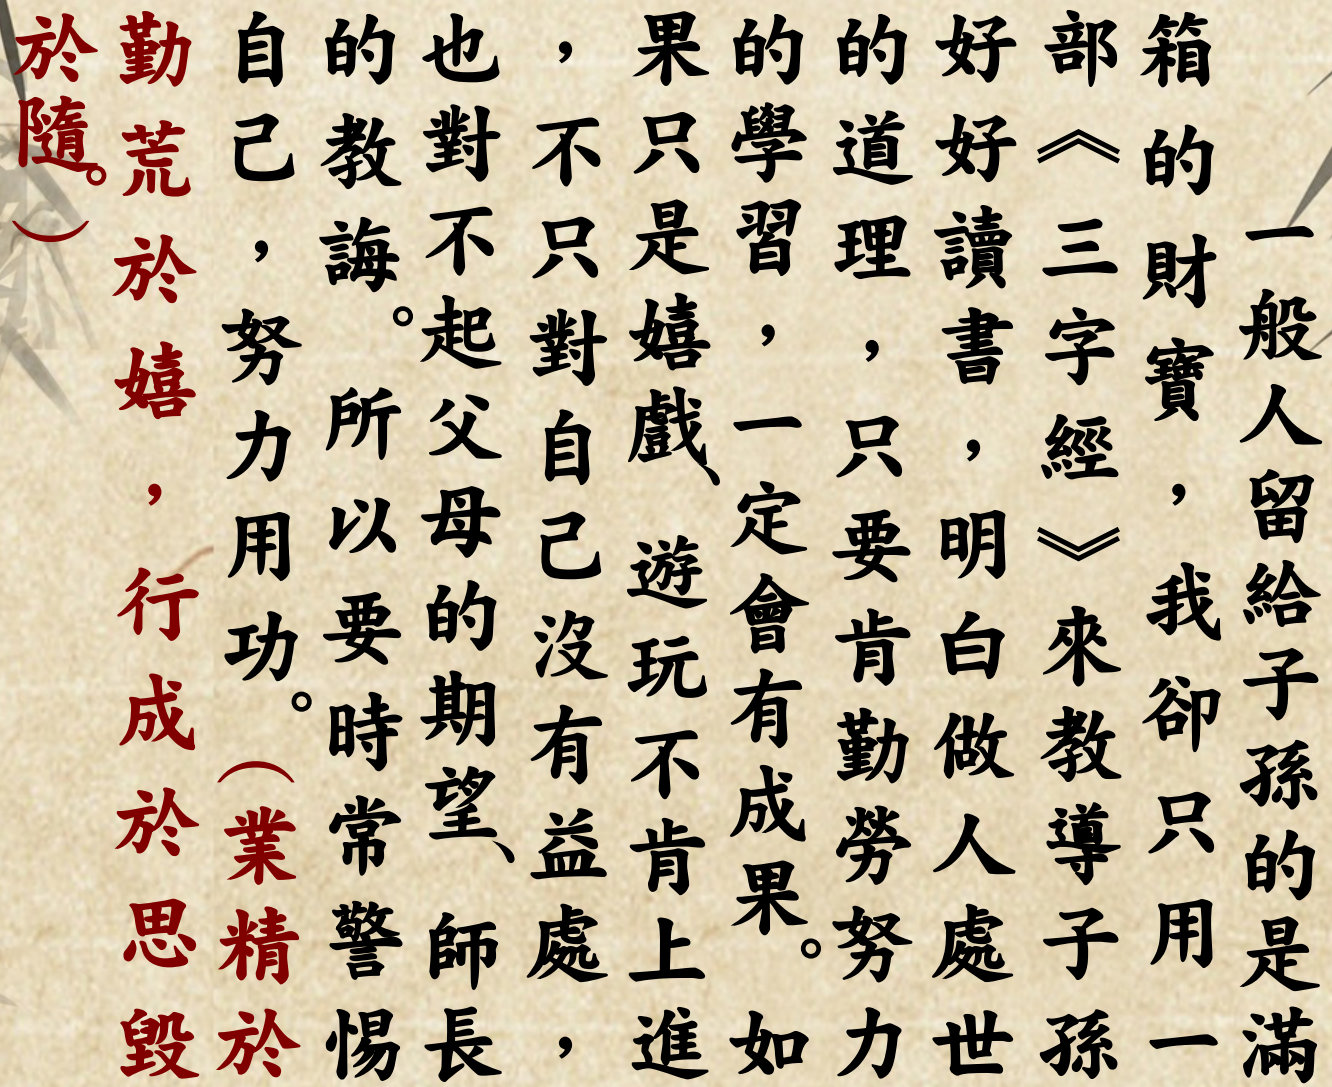 一般人留給子孫的是滿
箱的財寶，我卻只用一
部《三字經》來教導子孫
好好讀書，明白做人處世
的道理，只要肯勤勞努力
的學習，一定會有成果。如
果只是嬉戲、遊玩不肯上進
，不只對自己沒有益處，
也對不起父母的期望、師長
的教誨。所以要時常警惕
自己，努力用功。（業精於
勤荒於嬉，行成於思毀
於隨。）